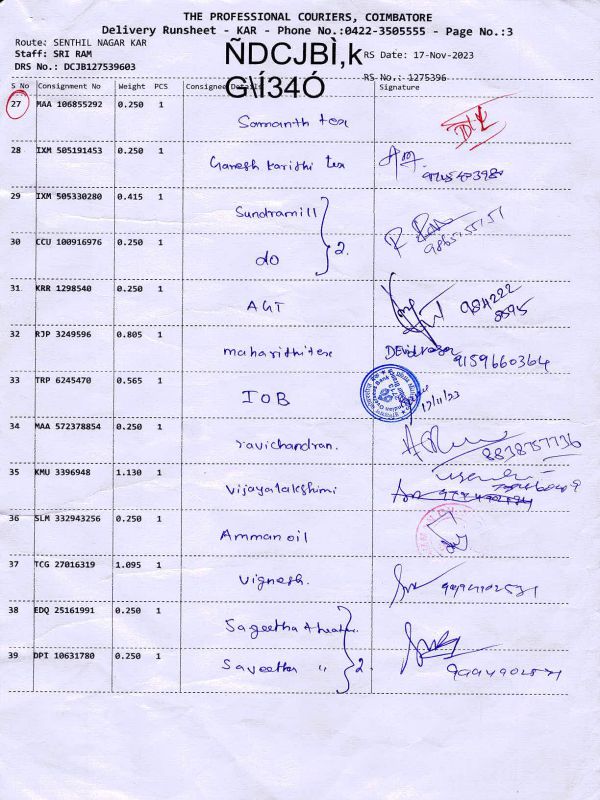 THE PROFESSIONAL COURIERS, COIMBATORE
Delivery Runsheet - KAR - Phone No.:0422-3505555 - Page No.:3
Route: SENTHIL NAGAR KAR
Staff: SRI RAM
DRS No.: DCJB127539603
ÑDCJBÌ,k
G\Í34Ó
RS Date: 17-Nov-2023
RS No.: 1275396
S No Consignment No Weight PCS Consignee Details Signature
27 MAA 106855292 0.250 1
28 IXM 505191453 0.250 1 Ganesh Karithi tex
29 IXM 505330280 0.415 1 Sundramill
30 CCU 100916976 0.250 1 do 2.
31 KRR 1298540 0.250 1 AGT 984222
32 RJP 3249596 0.805 1 maharithitex 9159660364
33 TRP 6245470 0.565 1 IOB 17/11/23
34 MAA 572378854 0.250 1 ravichandran. 8838757736
35 KMU 3396948 1.130 1 vijayalakshimi
36 SLM 332943256 0.250 1 Amman oil
37 TCG 27016319 1.095 1 vignesh.
38 EDQ 25161991 0.250 1
39 DPI 10631780 0.250 1 " 2.